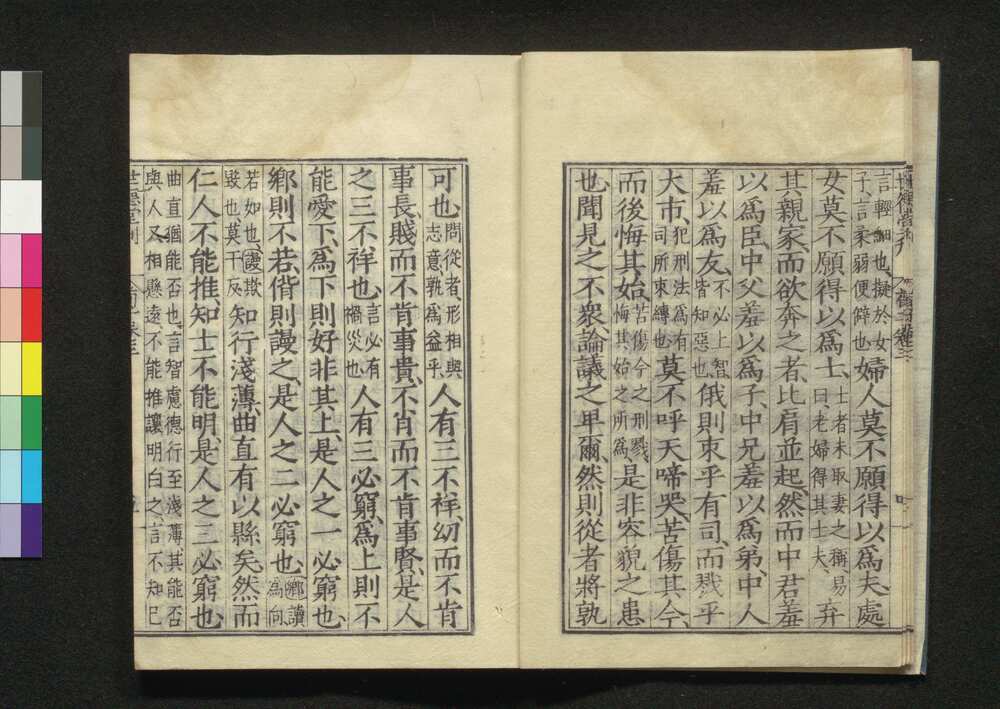 世德堂刊　荀子卷三
言輕細也擬於女
子言柔弱便僻也婦人莫不願得以爲夫處
女莫不願得以爲士士者未取妻之稱易
曰老婦得其士夫弃
其親家而欲奔之者比肩並起然而中君羞
以爲臣中父羞以爲子中兄羞以爲弟中人
羞以爲友不必上智
皆知惡也俄則束乎有司而戮乎
大市犯刑法爲有
司所束縛也莫不呼天啼哭苦傷其今
而後悔其始苦傷今之刑戮
悔其始之所爲是非容貌之患
也聞見之不衆論議之卑爾然則從者將孰
可也問從者形相與
志意孰爲益乎人有三不祥幼而不肯
事長賤而不肯事貴不肖而不肯事賢是人
之三不祥也言必有
禍災也人有三必窮爲上則不
能愛下爲下則好非其上是人之一必窮也
鄉則不若偝則謾之是人之二必窮也鄉讀
爲向
若如也謾欺
毀也莫干反知行淺薄曲直有以縣矣然而
仁人不能推知士不能明是人之三必窮也
曲直猶能否也言智慮德行至淺薄其能否
與人又相懸遠不能推讓明白之言不知已
世德堂刊